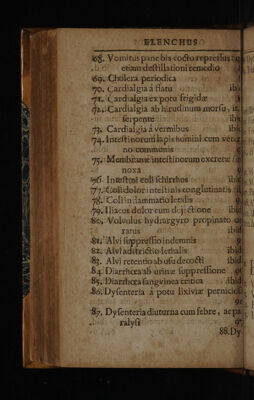 ELENCHUS
68. Vomitus pane bis cocto repressus
etiam destillationi remedio
69. Cholera periodica
70. Cardialgia à flatu ibid
71. Cardialgia ex potu frigidæ
72. Cardialgia ab hirudinum morsu,
serpente ibid
73. Cardialgia à vermibus ibid
74. Intestinorum lapis homini cum
no communis
75. Membranæ intestinorum excretæ
noxa 9
76. Intestini coli schirrhus ibid
77. Coli dolor intestinis conglutinatis
78. Coli inflammatio letalis 9
79. Iliacus dolor cum dejectione ibid
80. Volvulus hydrargyro propinato
ratus ibid
81. Alvi suppressio indemnis 9
82. Alvi adstrictio lethalis ibid
83. Alvi retentio ab usu decocti ibid
84. Diarrhœa ab urinæ suppressione
85. Diarrhœa sanguinea critica ibid
86. Dysenteria à potu lixiviæ
87. Dysenteria diuturna cum febre, ac pa
ralysi
88. Dy